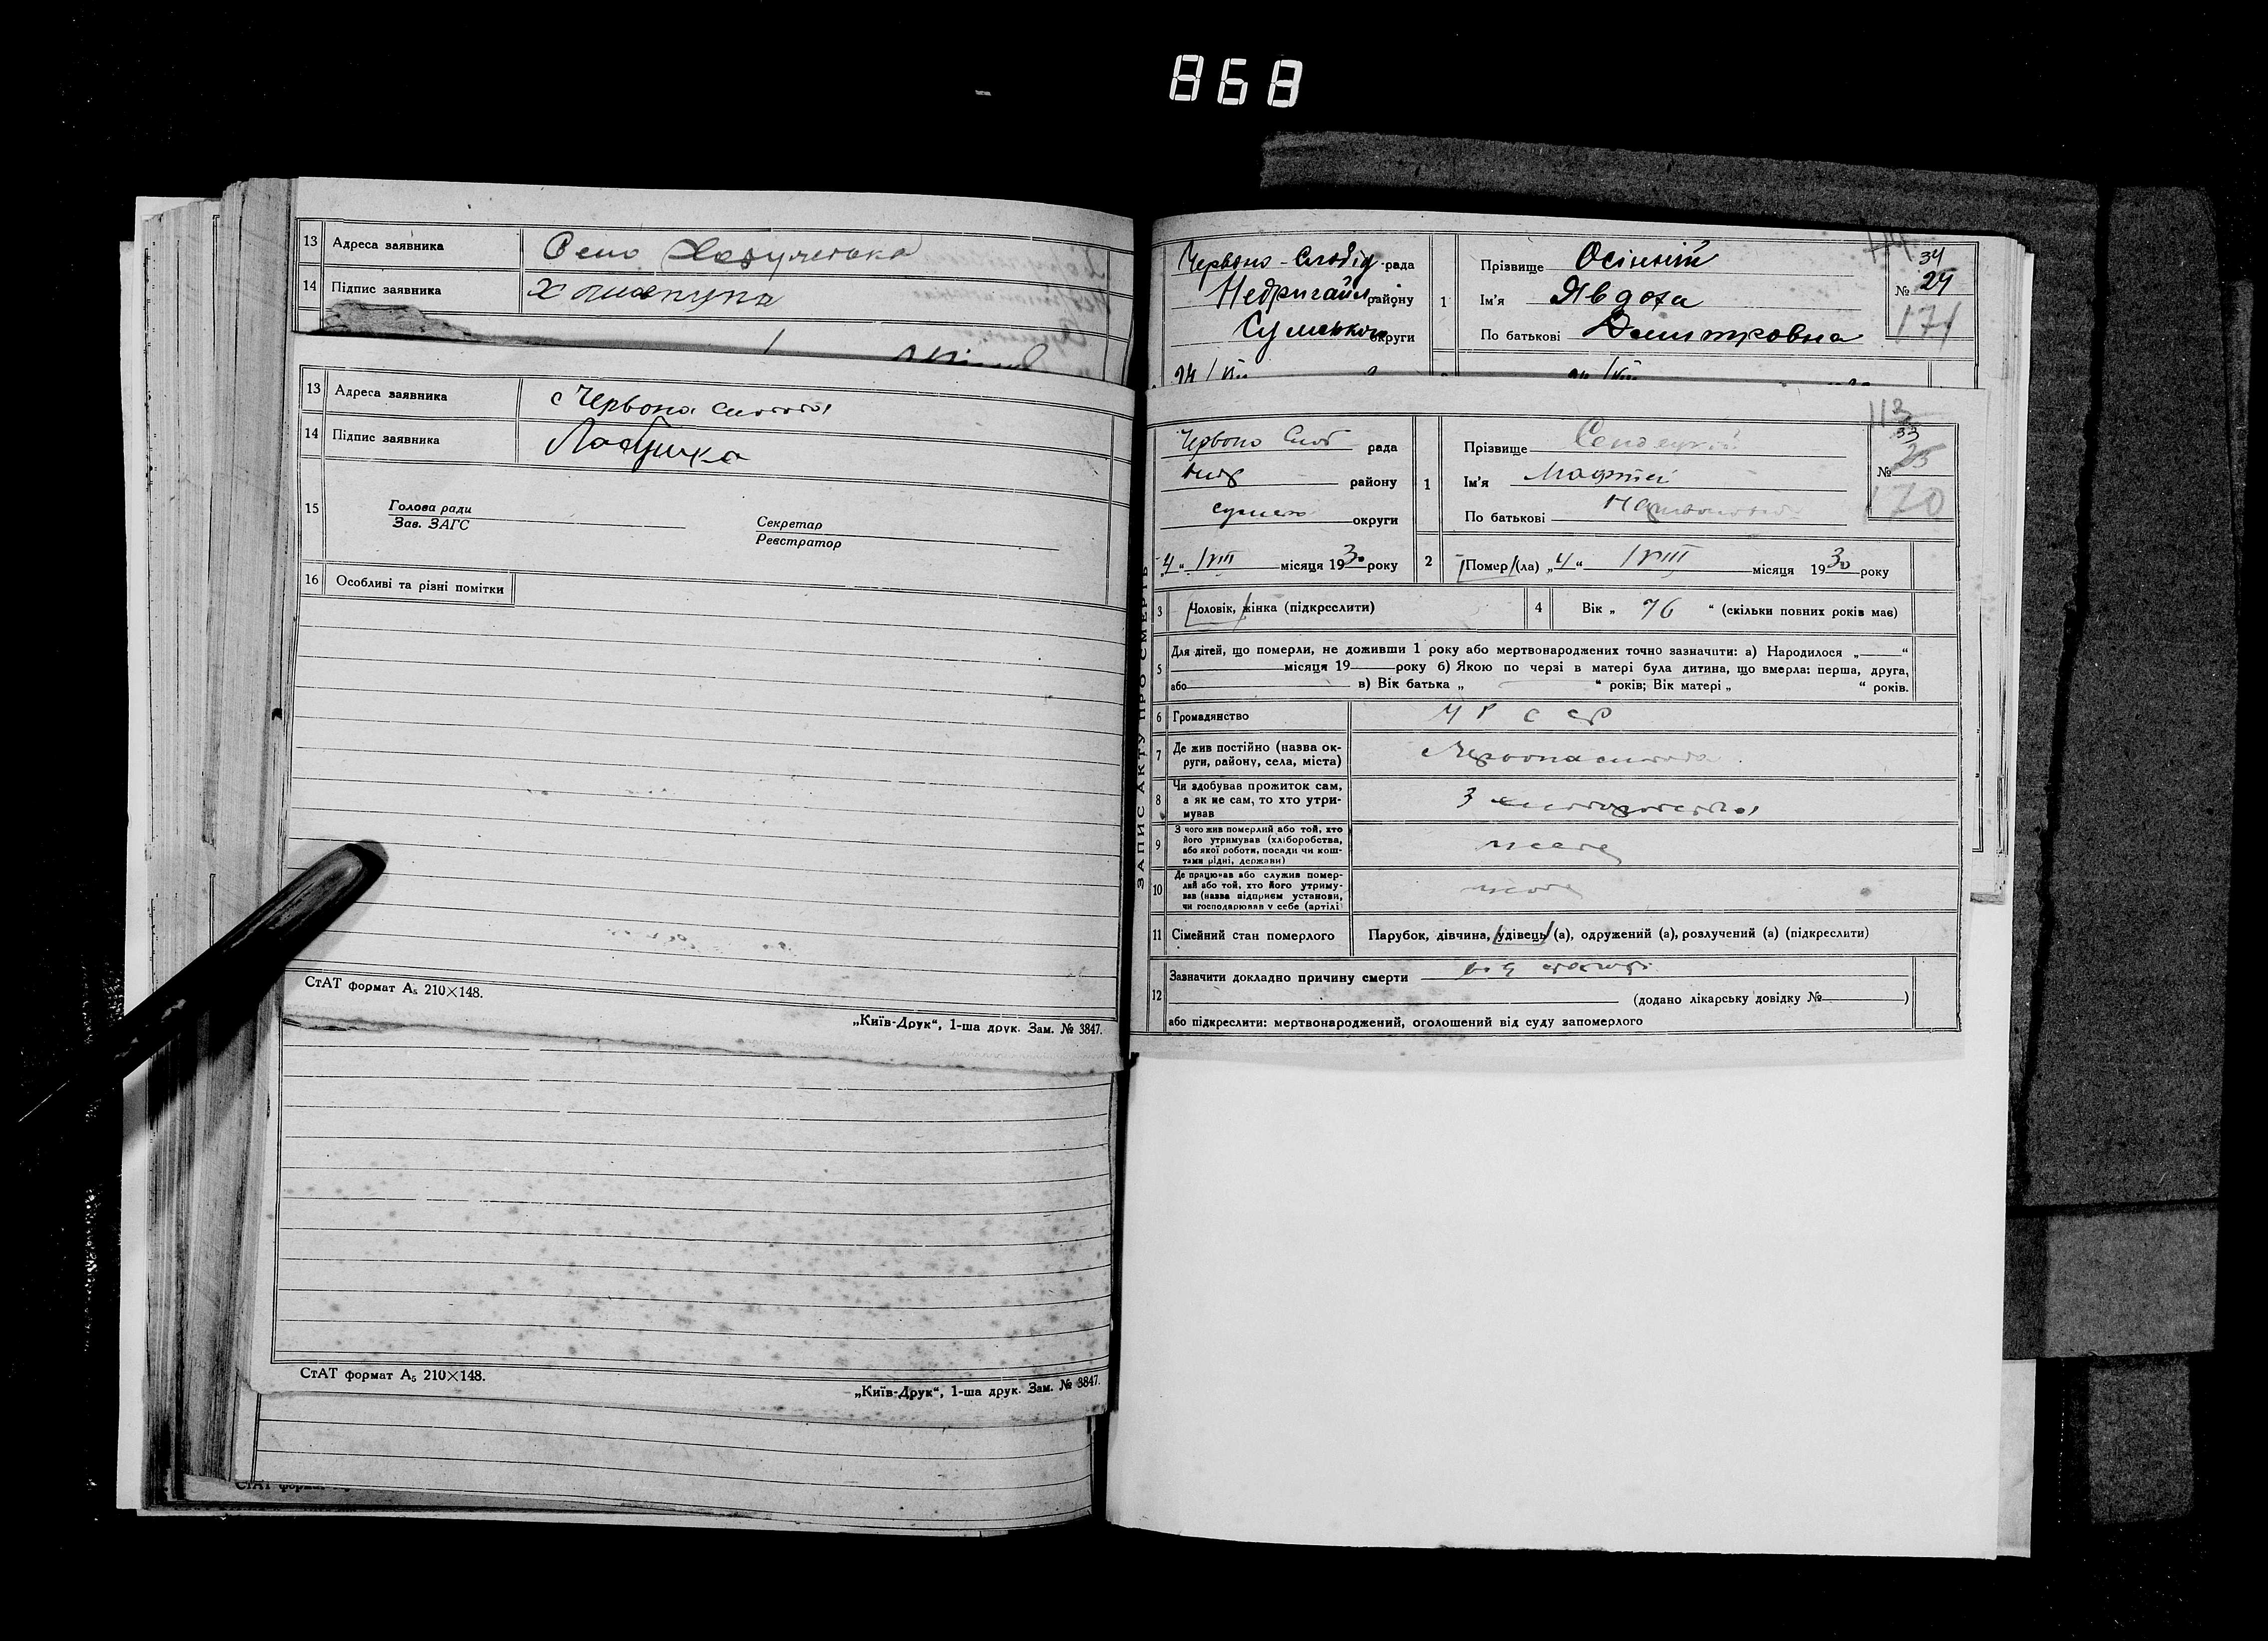 868
13 Адреса заявника Село
14 Підпис заявника
13 Адреса заявника с Червона слобода
14 Підпис заявника
15 Голова ради
Зав. ЗАГС
Секретар
Реєстратор
16 Особливі та різні помітки
СтАТ формат А₅ 210×148.
„Київ-Друк“, 1-ша друк. Зам. № 3847.
СтАТ формат А₅ 210×148.
„Київ-Друк“, 1-ша друк. Зам. № 3847.
СтАТ формат
Червоно-Слобід рада
Недригайл району
Сумської округи
1 Прізвище Осінній
Ім'я Явдоха
По батькові Дмитровна
34
№ 24
171
ЗАПИС АКТУ ПРО СМЕРТЬ
Червоно Слоб рада
Недр району
Сумсь округи
1 Прізвище
Ім'я Мафтей
По батькові
113
33
№ 23
170
„4“ VIII місяця 1930 року
2 Помер (ла) „4“ VIII місяця 1930 року
3 Чоловік, жінка (підкреслити)
4 Вік „ 76 “ (скільки повних років мав)
5 Для дітей, що померли, не доживши 1 року або мертвонароджених точно зазначити: а) Народилося „ “
місяця 19 року б) Якою по черзі в матері була дитина, що вмерла: перша, друга,
або в) Вік батька „ “ років; Вік матері „ “ років.
6 Громадянство УРССР
7 Де жив постійно (назва округи, району, села, міста) с Червона слобода
8 Чи здобував прожиток сам,
а як не сам, то хто утримував
9 З чого жив померлий або той, хто
його утримував (хліборобства,
або якої роботи, посади чи коштами рідні, держави)
10 Де працював або служив померлий або той, хто його утримував (назва підприєм установи,
чи господарював у себе (артілі)
11 Сімейний стан померлого Парубок, дівчина, удівець (а), одружений (а), розлучений (а) (підкреслити)
12 Зазначити докладно причину смерти від старости
(додано лікарську довідку № )
або підкреслити: мертвонароджений, оголошений від суду запомерлого